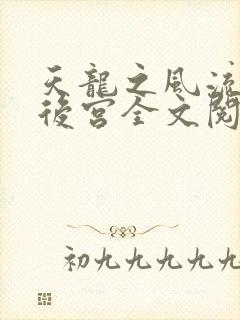 天龍之風流
後宮全文閱
初九九九九九